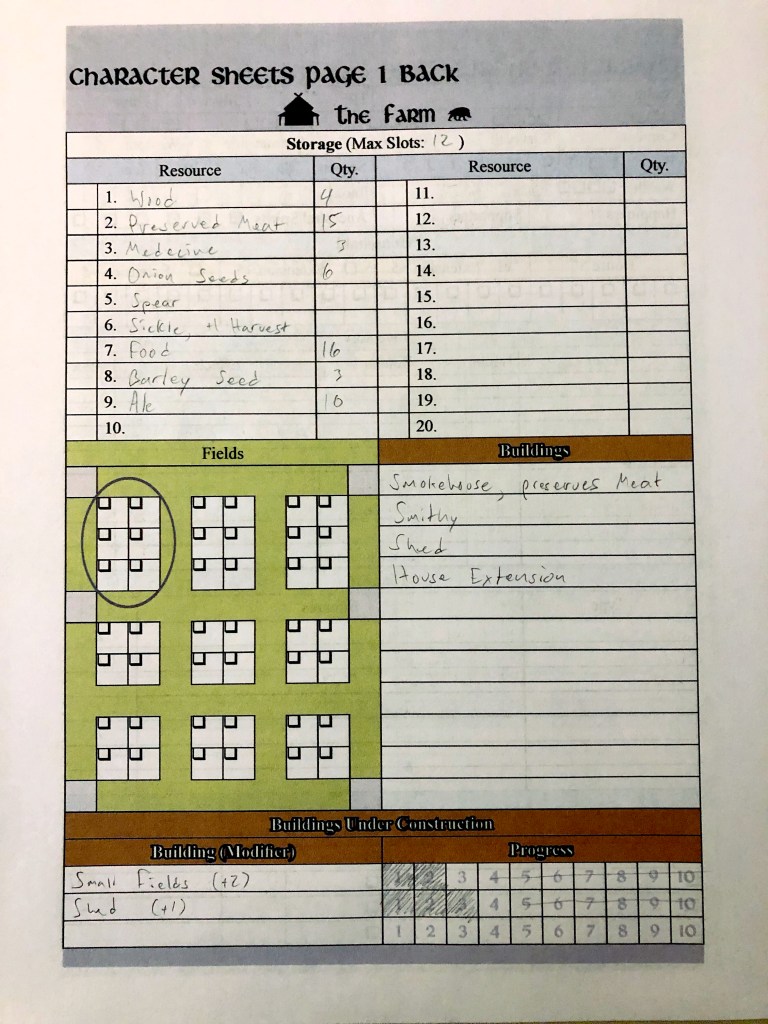 Character Sheets Page 1 Back
The Farm
Storage (Max Slots: 12 )
Resource Qty. Resource Qty.
1. Wood 4 11.
2. Preserved Meat 15 12.
3. Medecine 3 13.
4. Onion Seeds 6 14.
5. Spear 15.
6. Sickle, +1 Harvest 16.
7. Food 16 17.
8. Barley Seed 3 18.
9. Ale 10 19.
10. 20.
Fields Buildings
Smokehouse, preserves Meat
Smithy
Shed
House Extension
Buildings Under Construction
Building (Modifier) Progress
Small Fields (+2) 1 2 3 4 5 6 7 8 9 10
Shed (+1) 1 2 3 4 5 6 7 8 9 10
1 2 3 4 5 6 7 8 9 10